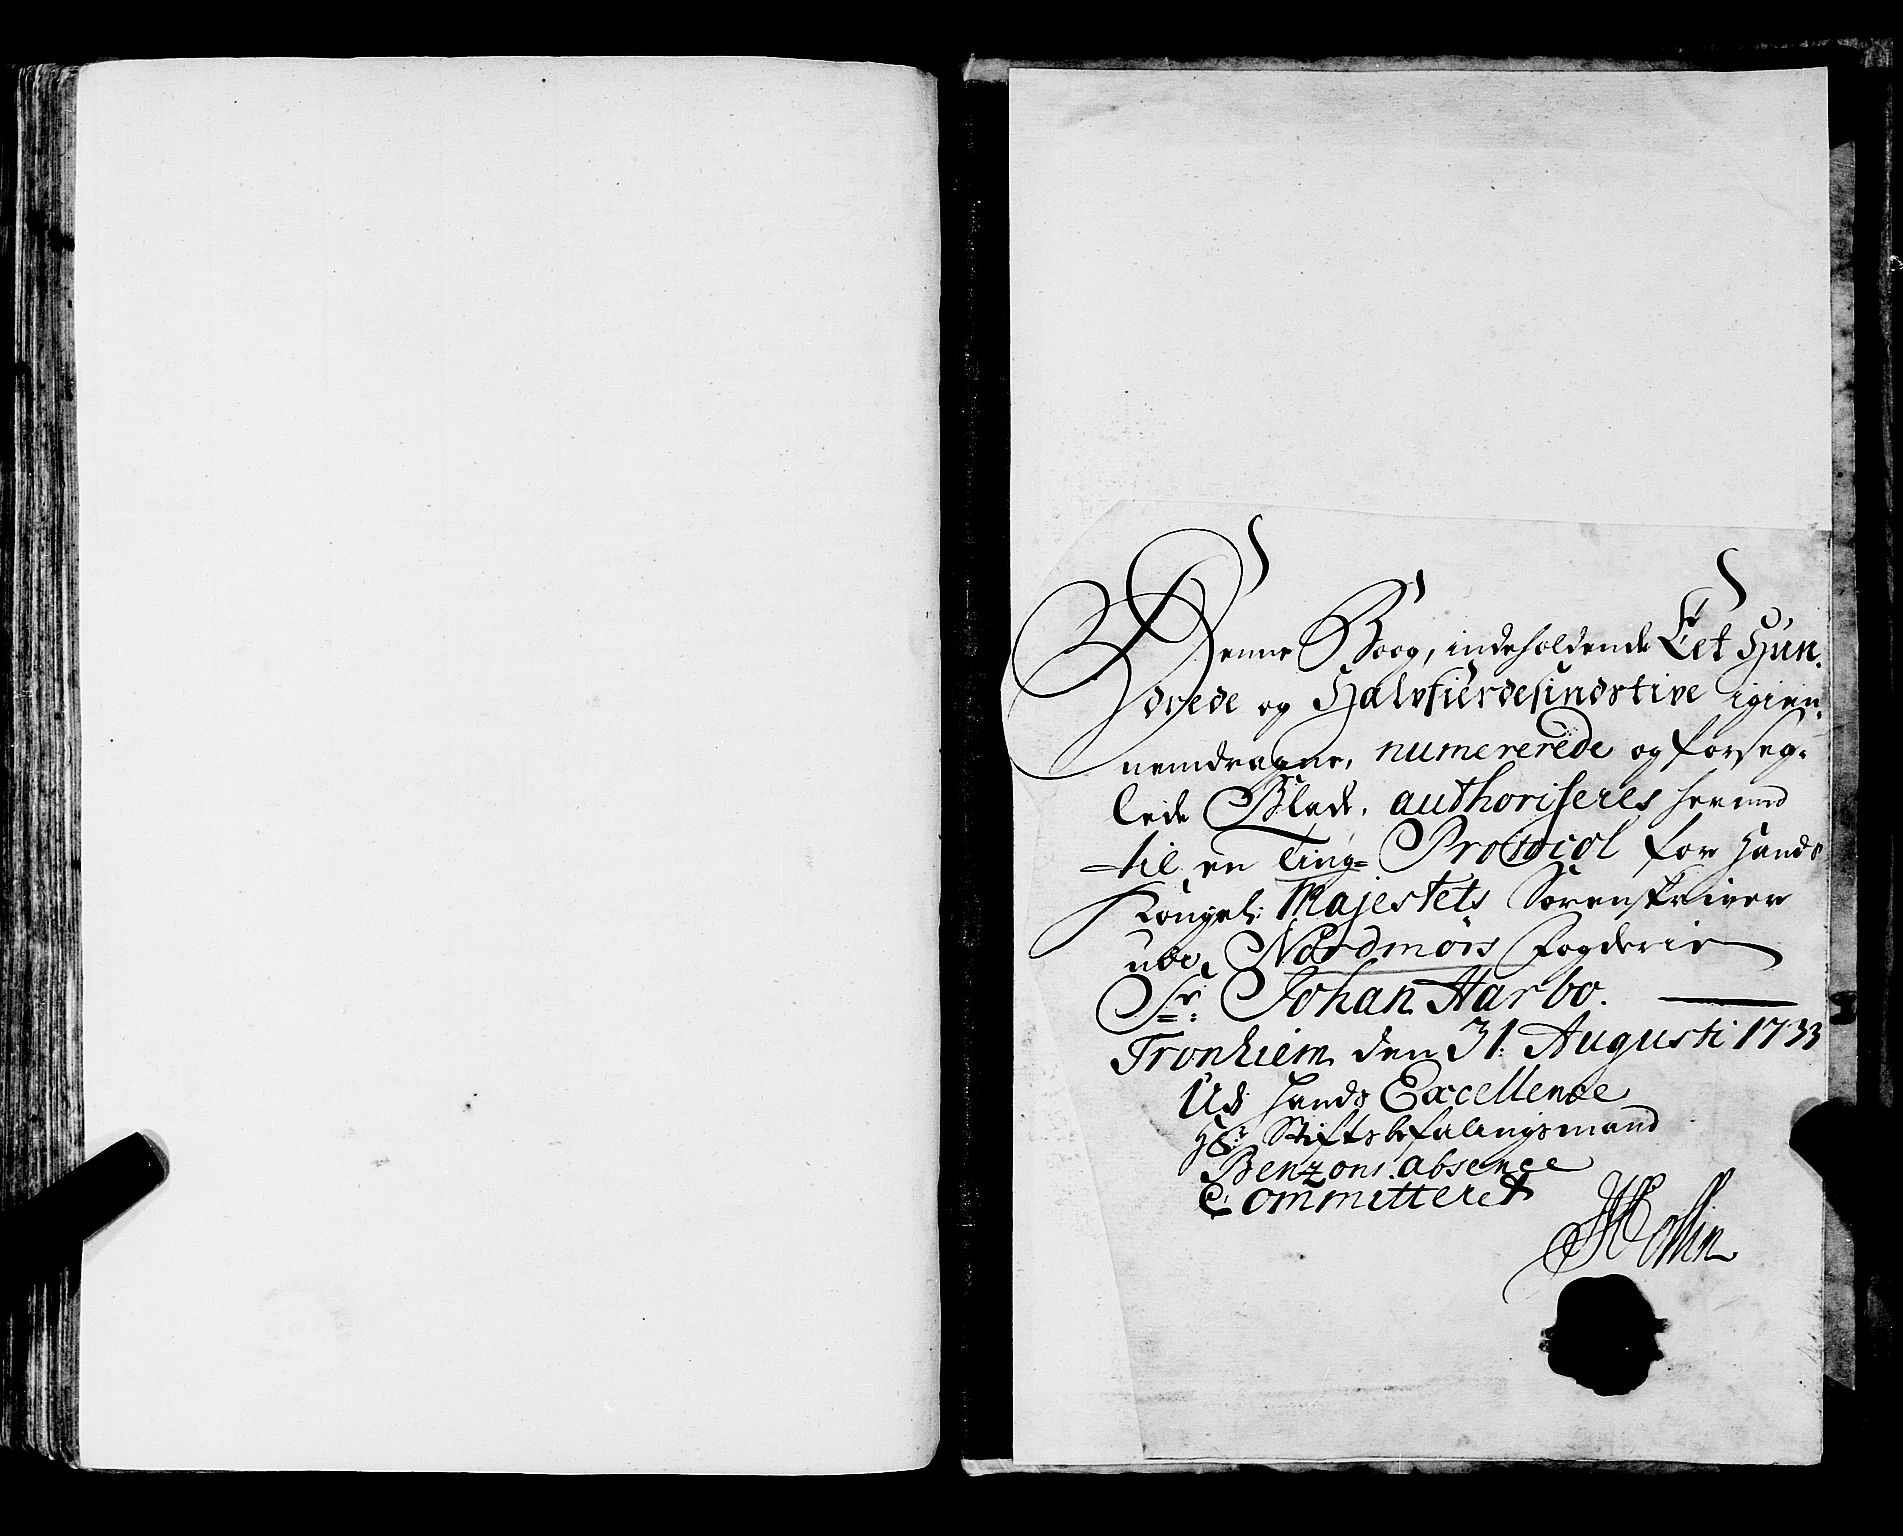 Denne Boog, indeholdende Eet Hun-
drede og Halvfierdesindstive igien-
nemdragne, numererede og forseg-
lede Blade, authoriseres hermed
til en Ting-Protocol for Hands
Kongel: Majestets Sorenskriver
over Nordmørs Fogderie
Sr: Johan Harbo.
Tronhiem den 31. Augusti 1733
Udi Hands Excellence
Hr: Stiftsbefalingsmand
Benzons absence
Committeret